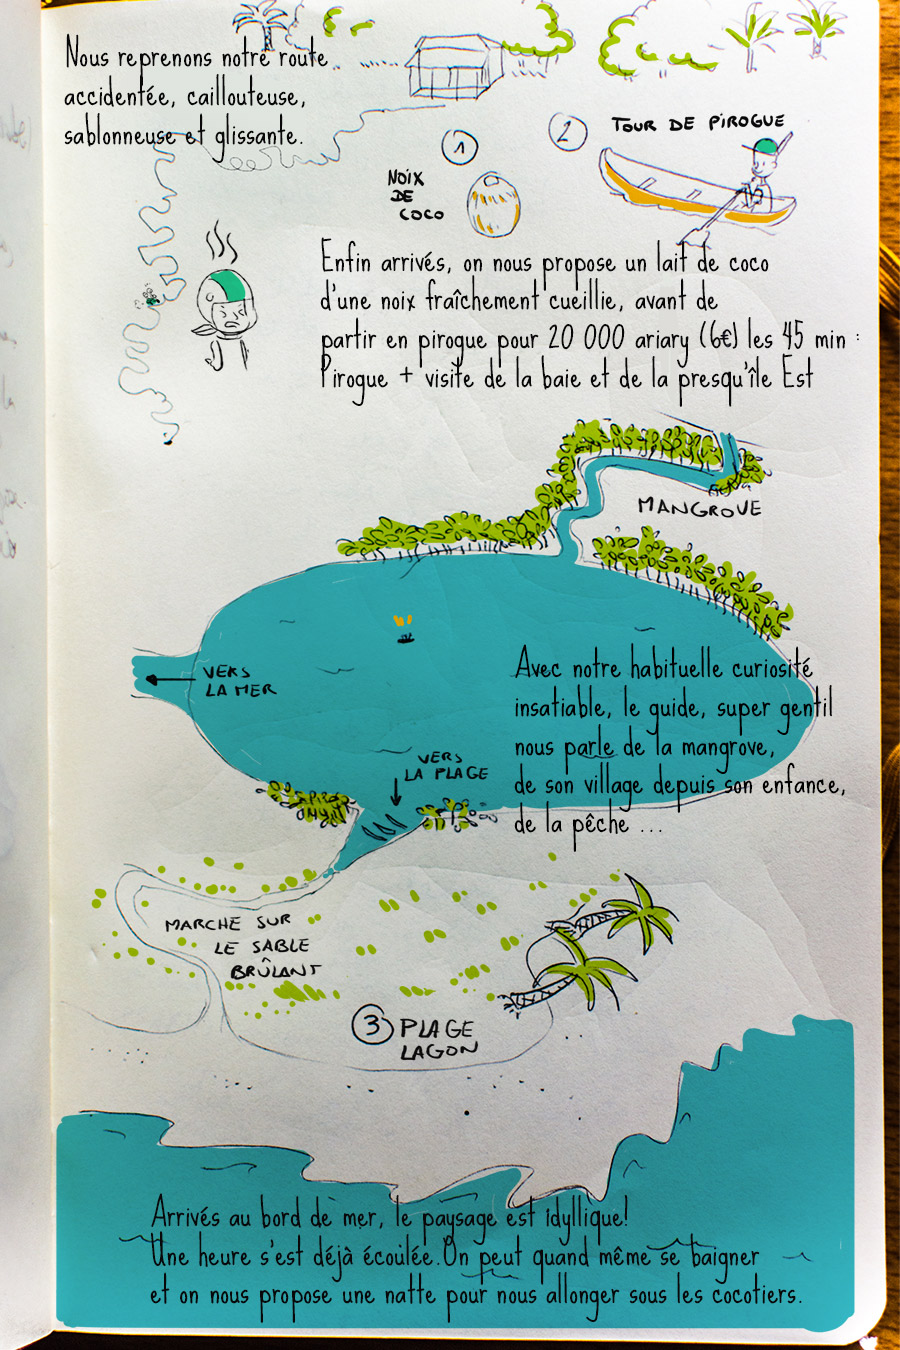 Nous reprenons notre route
accidentée, caillouteuse,
sablonneuse et glissante.
1
NOIX
DE
COCO
2
TOUR DE PIROGUE
Enfin arrivés, on nous propose un lait de coco
d'une noix fraîchement cueillie, avant de
partir en pirogue pour 20 000 ariary (6€) les 45 min :
Pirogue + visite de la baie et de la presqu'île Est
MANGROVE
VERS
LA MER
Avec notre habituelle curiosité
insatiable, le guide, super gentil
nous parle de la mangrove,
de son village depuis son enfance,
de la pêche ...
VERS
LA PLAGE
MARCHE SUR
LE SABLE
BRÛLANT
3 PLAGE
LAGON
Arrivés au bord de mer, le paysage est idyllique!
Une heure s'est déjà écoulée.On peut quand même se baigner
et on nous propose une natte pour nous allonger sous les cocotiers.